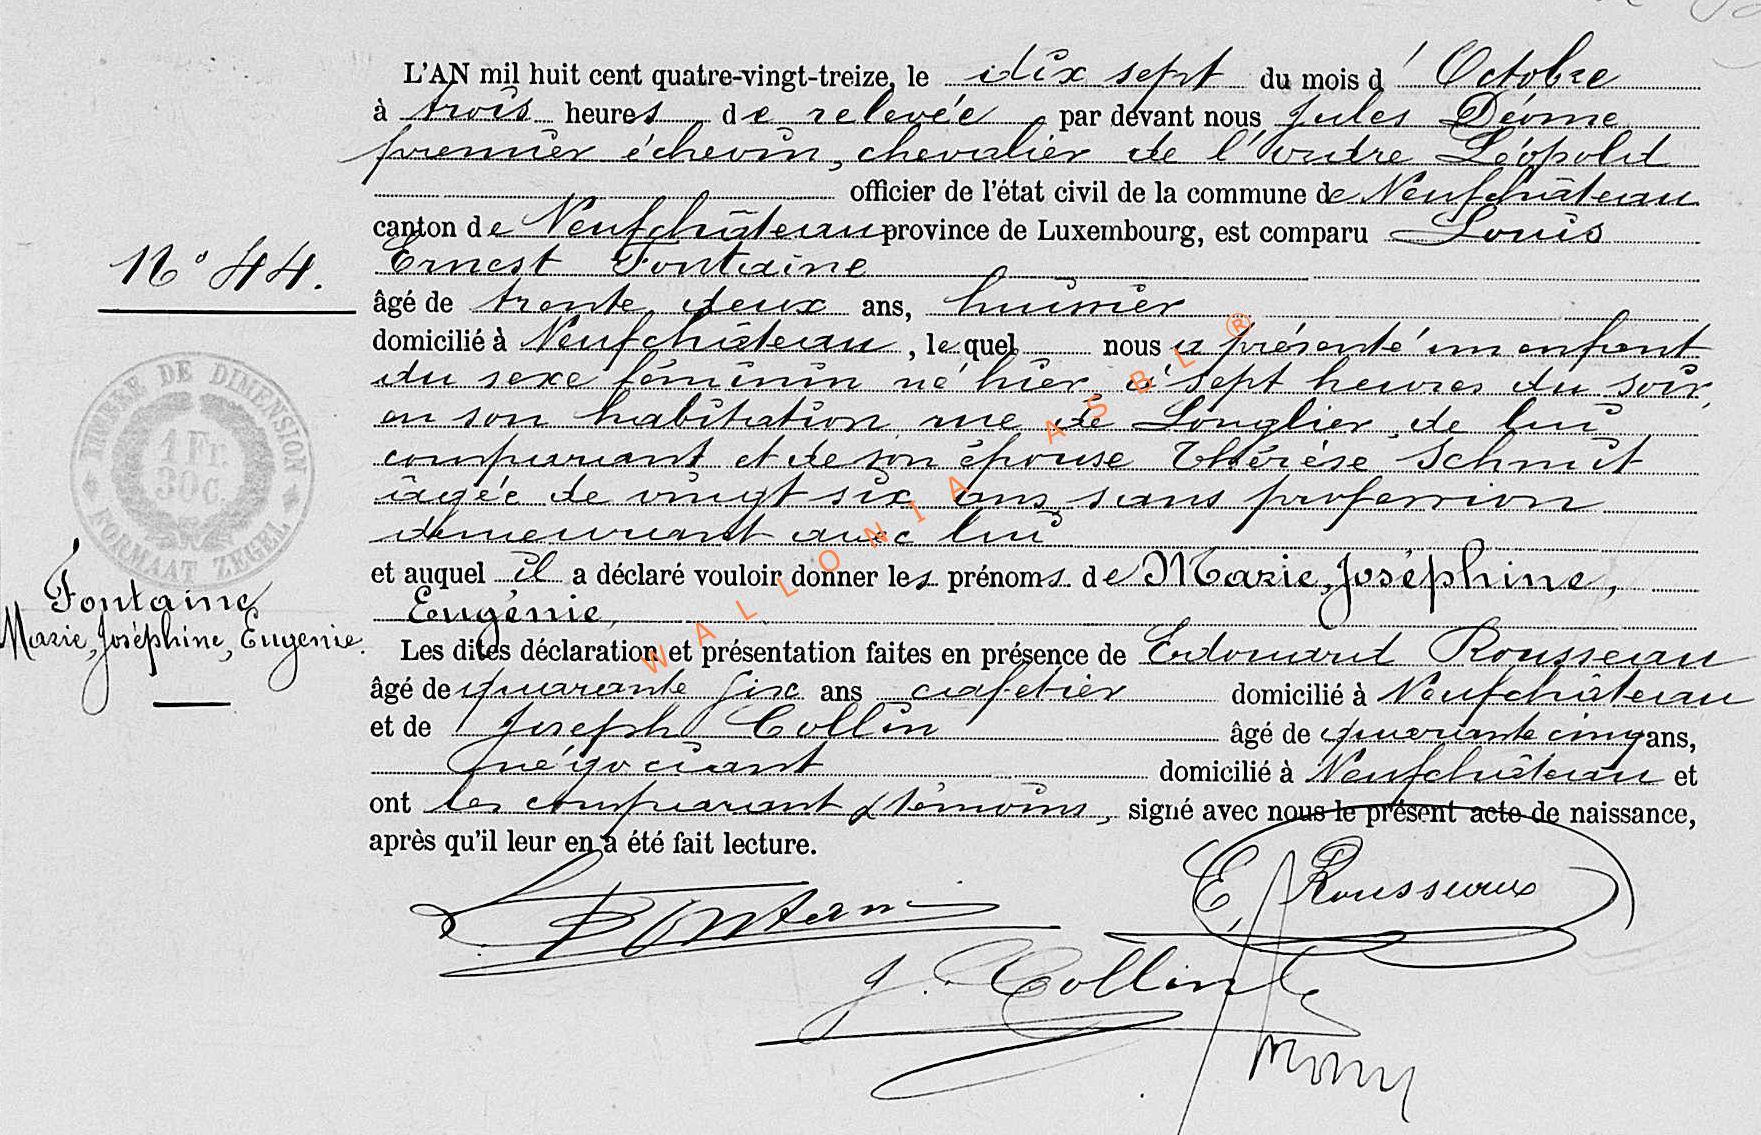 L'AN mil huit cent quatre-vingt-treize, le dix sept du mois d'Octobre
à trois heures de relevée, par devant nous Jules Déome
premier échevin, chevalier de l'ordre Léopold
officier de l'état civil de la commune de Neufchâteau
canton de Neufchâteau province de Luxembourg, est comparu Louis
N° 44.
Ernest Fontaine
âgé de trente deux ans, huissier
domicilié à Neufchâteau, lequel nous a présenté un enfant
du sexe féminin né hier à sept heures du soir,
en son habitation rue de Longlier, de lui
comparant et de son épouse Thérèse Schmit
âgée de vingt six ans, sans profession
demeurant avec lui
TIMBRE DE DIMENSION
1 Fr.
30 C.
FORMAAT ZEGEL
et auquel il a déclaré vouloir donner les prénoms de Marie, Joséphine,
Eugénie,
Fontaine
Marie, Joséphine, Eugenie.
Les dites déclaration et présentation faites en présence de Edouard Rousseau
âgé de quarante six ans cafetier domicilié à Neufchâteau
et de Joseph Collin âgé de quarante cinq ans,
négociant domicilié à Neufchâteau et
ont les comparant & témoins, signé avec nous le présent acte de naissance,
après qu'il leur en a été fait lecture.
E. Rousseaux
J. Collin
WALLONIA ASBL ®